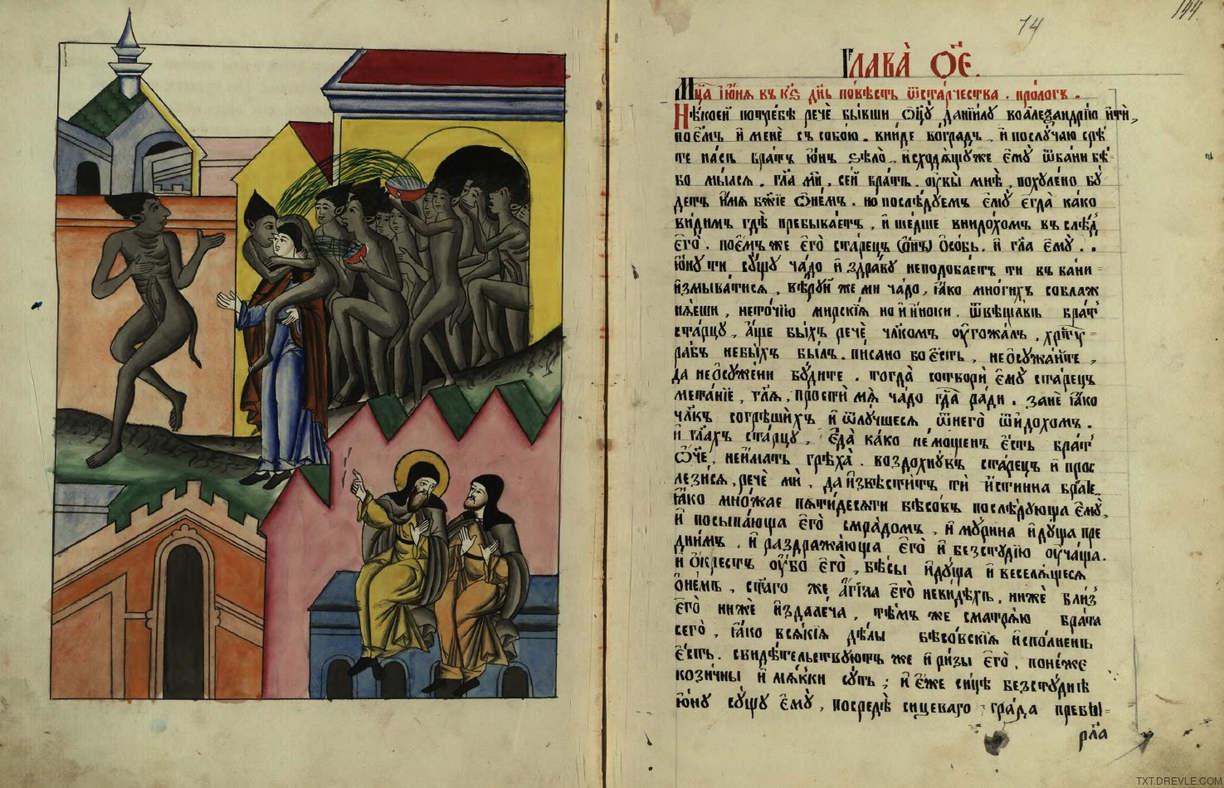 144
74
Глава̀ ѻ҃е.
Мц҃а іюнѧ въ к҃ѕ дн҃ь повѣсть ѿ старчества. прологъ.
Нѣкоей потребѣ речѐ бывши ѻц҃ꙋ данїилꙋ во алеѯандрїю ити̑,
поем̑ъ, и менѐ съ собою. вниде во градъ, и послꙋчаю срѣ
те насъ братъ юнъ ѕѣло̀, исходѧщꙋ же емꙋ̀ ѿ бани бѣ
бо мылсѧ. гл҃а ми̑, сей братъ. ѹвы̀ мнѣ, похꙋлено бꙋ
детъ имѧ бж҃їе ѡ немъ. но послѣдꙋемъ емꙋ̀ егда̀ како
видимъ гдѣ̀ пребываетъ, и шедше внидохомъ въ слѣд̾
его̀. поемъ же его̀ старецъ ѻсобь. и гл҃а емꙋ̀..
юнꙋ ти сꙋщꙋ чадо и здравꙋ неподобаетъ ти въ бани
измыватисѧ, вѣрꙋй же ми чадо, ꙗко многихъ соблаж
нѧеши, не точїю мирскїѧ но и иноки. ѿвѣщавъ брат̾
старцꙋ, аще быхъ речѐ чл҃комъ ѹгожалъ, хрⷭ҇тꙋ
рабъ небыхъ былъ. писано бо есть, не ѻсꙋжайте,
да не ѻсꙋжени бꙋдите. тогда̀ сотвори̑ емꙋ̀ старецъ
метанїе, гл҃ѧ, прости мѧ̀ чадо гдⷭ҇а ради. занѐ ꙗко
чл҃къ согрѣшихъ и ѿлꙋчшесѧ ѿ него̀ ѿидохомъ.
и гл҃ахъ старцꙋ, еда̀ како немощенъ есть брат̾
ѻч҃е, неимать грѣха̀. воздохнꙋвъ старецъ и прос
лезисѧ, речѐ ми, да извѣститъ ти истинна брате
ꙗко множае пѧтидесѧти бѣсовъ послѣдꙋюща емꙋ̀,
и посыпающа его̀ смрадомъ, и мꙋрина идꙋща пре
д̾ нимъ. и раздражающа его̀ и безстꙋдїю ѹчаща.
и ѻкрестъ ѹбо его̀, бѣсы идꙋща и веселѧщесѧ
ѻ немъ, ст҃аго же аг҃гл҃а его̀ невидѣхъ, ниже близ̾
его̀ ниже издалеча, тѣмъ же смотрѧю брата
сего̀, ꙗко всѧкїѧ дѣлы бѣсовскїѧ исполнень
есть. свидѣтельствꙋютъ же и ризы его̀, понеже
козичны и мѧкки сꙋть; и еже сицѣ безстꙋднѣ
юнꙋ сꙋщꙋ емꙋ̀, посредѣ сицеваго града пребы
рл҃а
TXT.DREVLE.COM